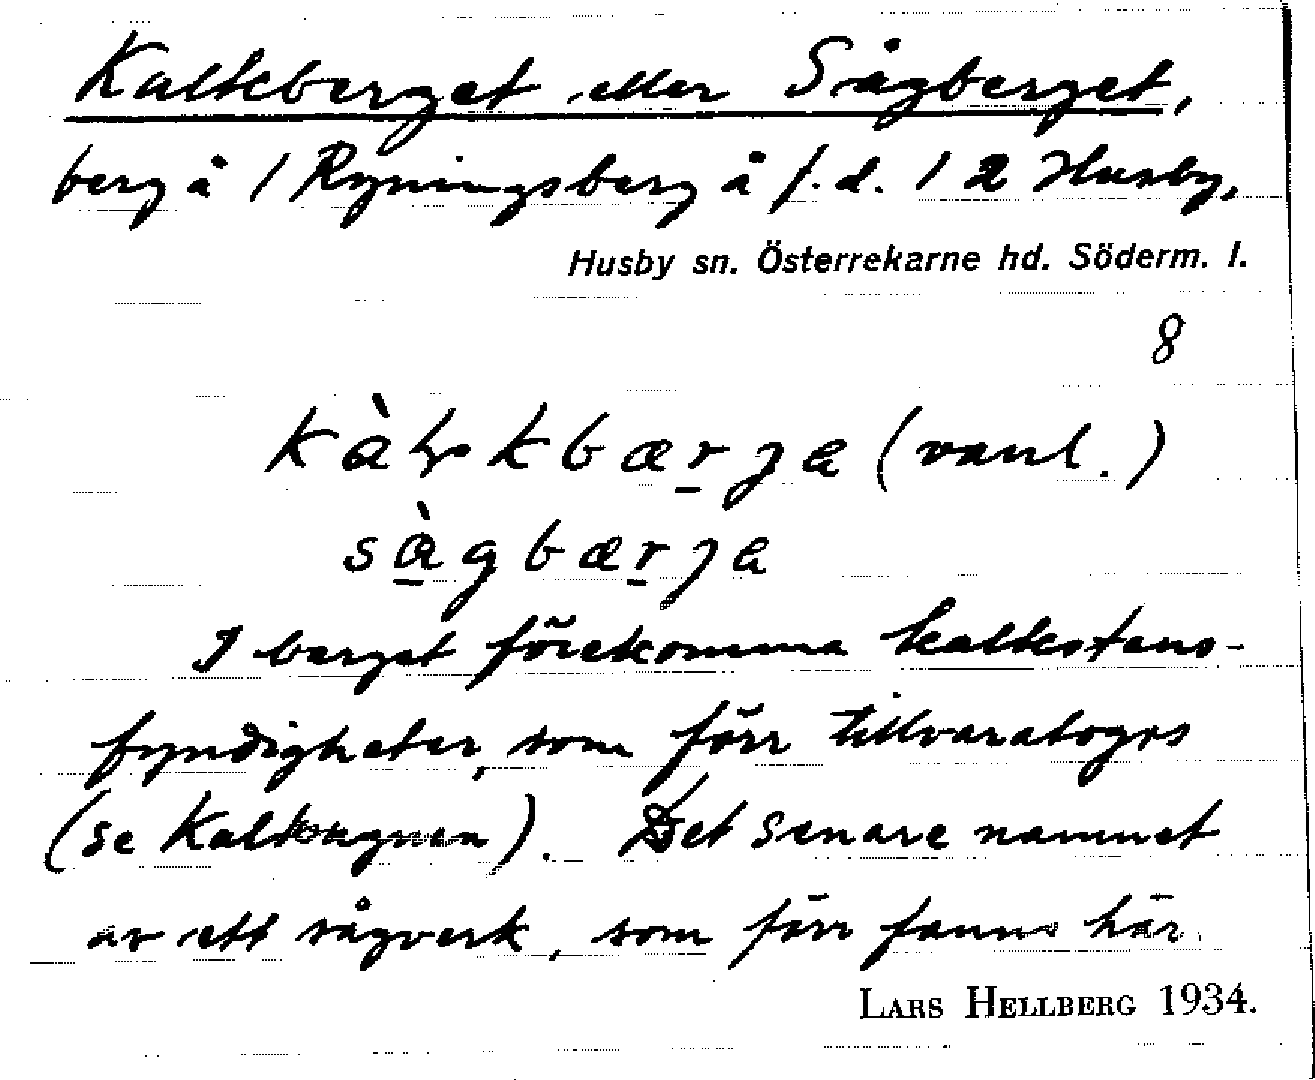 Kalkberget eller Sågberget,
berg å 1 Ryningsberg å f.d. 1 2 Husby,
Husby sn. Österrekarne hd. Söderm. l.
8
kàḷkbærja (vanl.)
sàgbærja
I berget förekomma kalkstens-
fyndigheter, som förr tillvaratogos
(se Kalkugnen). Det senare namnet
av ett sågverk, som förr fanns här.
LARS HELLBERG 1934.